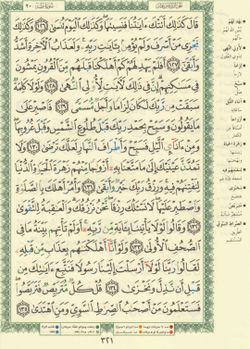 قَالَ كَذَٰلِكَ أَتَتْكَ ءَايَٰتُنَا فَنَسِيتَهَا وَكَذَٰلِكَ ٱلْيَوْمَ تُنسَىٰ ١٢٦ وَكَذَٰلِكَ
نَجْزِى مَنْ أَسْرَفَ وَلَمْ يُؤْمِنۢ بِـَٔايَٰتِ رَبِّهِۦ وَلَعَذَابُ ٱلْـَٔاخِرَةِ أَشَدُّ
وَأَبْقَىٰٓ ١٢٧ أَفَلَمْ يَهْدِ لَهُمْ كَمْ أَهْلَكْنَا قَبْلَهُم مِّنَ ٱلْقُرُونِ يَمْشُونَ
فِى مَسَٰكِنِهِمْ إِنَّ فِى ذَٰلِكَ لَـَٔايَٰتٍ لِّأُو۟لِى ٱلنُّهَىٰ ١٢٨ وَلَوْلَا كَلِمَةٌ
سَبَقَتْ مِن رَّبِّكَ لَكَانَ لِزَامًا وَأَجَلٌ مُّسَمًّى ١٢٩ فَٱصْبِرْ عَلَىٰ
مَا يَقُولُونَ وَسَبِّحْ بِحَمْدِ رَبِّكَ قَبْلَ طُلُوعِ ٱلشَّمْسِ وَقَبْلَ غُرُوبِهَا
وَمِنْ ءَانَآئِ ٱلَّيْلِ فَسَبِّحْ وَأَطْرَافَ ٱلنَّهَارِ لَعَلَّكَ تَرْضَىٰ ١٣٠ وَلَا
تَمُدَّنَّ عَيْنَيْكَ إِلَىٰ مَا مَتَّعْنَا بِهِۦٓ أَزْوَٰجًا مِّنْهُمْ زَهْرَةَ ٱلْحَيَوٰةِ ٱلدُّنْيَا
لِنَفْتِنَهُمْ فِيهِ وَرِزْقُ رَبِّكَ خَيْرٌ وَأَبْقَىٰ ١٣١ وَأْمُرْ أَهْلَكَ بِٱلصَّلَوٰةِ
وَٱصْطَبِرْ عَلَيْهَا لَا نَسْـَٔلُكَ رِزْقًا نَّحْنُ نَرْزُقُكَ وَٱلْعَٰقِبَةُ لِلتَّقْوَىٰ
١٣٢ وَقَالُوا۟ لَوْلَا يَأْتِينَا بِـَٔايَةٍ مِّن رَّبِّهِۦٓ أَوَلَمْ تَأْتِهِم بَيِّنَةُ مَا فِى
ٱلصُّحُفِ ٱلْأُولَىٰ ١٣٣ وَلَوْ أَنَّآ أَهْلَكْنَٰهُم بِعَذَابٍ مِّن قَبْلِهِۦ
لَقَالُوا۟ رَبَّنَا لَوْلَآ أَرْسَلْتَ إِلَيْنَا رَسُولًا فَنَتَّبِعَ ءَايَٰتِكَ مِن
قَبْلِ أَن نَّذِلَّ وَنَخْزَىٰ ١٣٤ قُلْ كُلٌّ مُّتَرَبِّصٌ فَتَرَبَّصُوا۟
فَسَتَعْلَمُونَ مَنْ أَصْحَٰبُ ٱلصِّرَٰطِ ٱلسَّوِىِّ وَمَنِ ٱهْتَدَىٰ ١٣٥
٣٢١